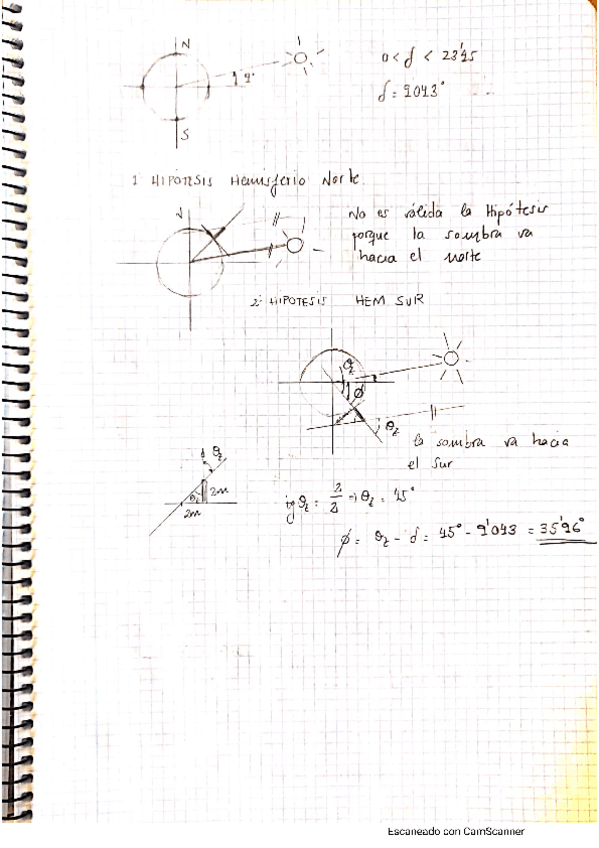 N
0 < δ < 23'45
9°
δ = 9'043°
S
1ª HIPÓTESIS Hemisferio Norte.
N
No es válida la Hipótesis
porque la sombra va
hacia el norte
2ª HIPOTESIS HEM SUR
θz
ϕ
θz
la sombra va hacia
el Sur
θz
θz
2m
2m
tg θz = 2/2 → θz = 45°
ϕ = θz - δ = 45° - 9'043 = 35'96°
Escaneado con CamScanner